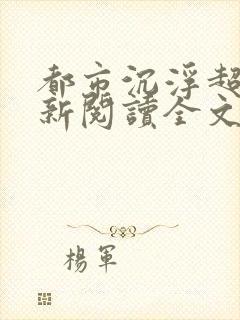 都市沉浮超
新閱讀全文
楊軍